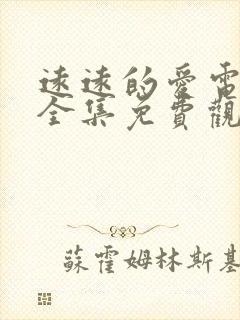 遠遠的愛電
全集免費觀
蘇霍姆林斯基